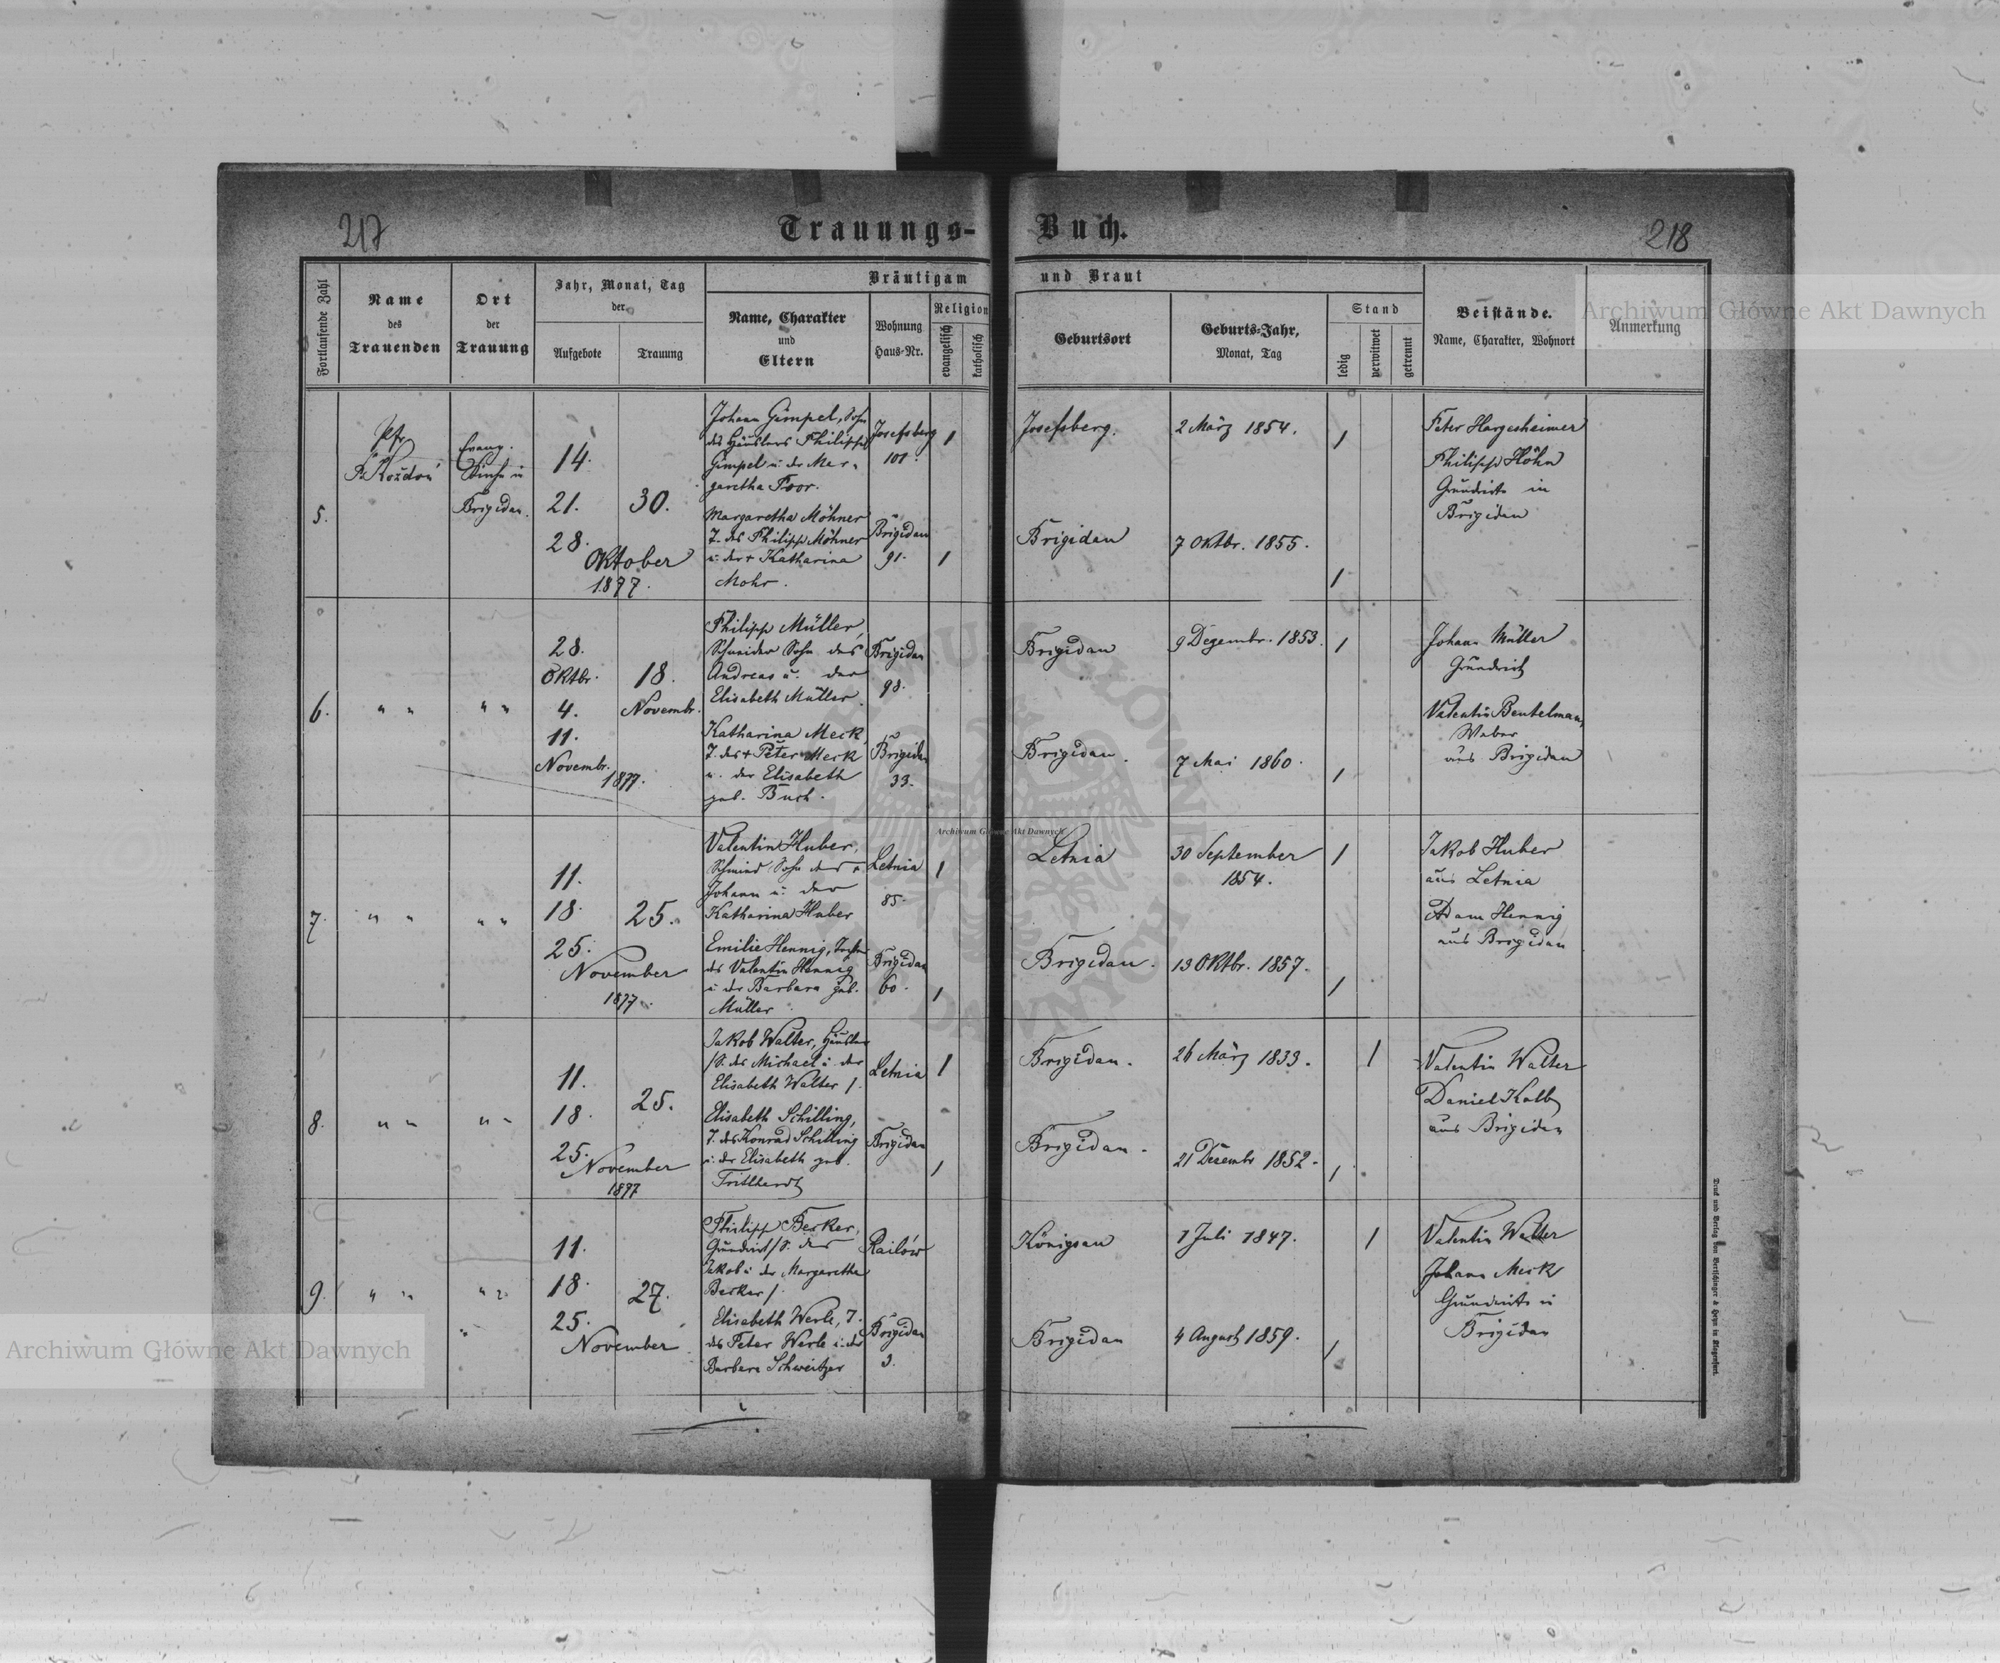 217
Trauungs-Buch.
218
Archiwum Główne Akt Dawnych
Fortlaufende Zahl
Name
des
Trauenden
Ort
der
Trauung
Jahr, Monat, Tag
der
Aufgebote
Trauung
Bräutigam
und Braut
Name, Charakter
und
Eltern
Wohnung
Haus-Nr.
Religion
evangelisch
katholisch
Geburtsort
Geburts-Jahr,
Monat, Tag
Stand
ledig
verwitwet
getrennt
Beistände.
Name, Charakter, Wohnort
Anmerkung
5.
Pfr
Evang.
Kirche in
Brigidau.
14.
21.
28.
30.
Oktober
1877.
Johann Gimpel, Sohn
des Häuslers Philipp
Gimpel u. der Mar-
garetha Poor.
Josefsberg
101.
Josefsberg.
2 März 1854.
Peter Hargesheimer
Philipp Höhn
Grundwirte in
Brigidau
Margaretha Möhner
T. des Philipp Möhner
u. der + Katharina
Mohr.
Brigidau
91.
Brigidau
7 Oktbr. 1855.
6.
" "
" "
28.
Oktbr.
4.
11.
Novembr.
1877.
18.
Novembr.
Philipp Müller,
Schneider Sohn des
Andreas u. der
Elisabeth Müller.
Brigidau
98.
Brigidau
9 Dezembr. 1853.
Johann Müller
Grundwirt
Valentin Beutelmann,
Weber
aus Brigidau
Katharina Merk
T. des + Peter Merk
u. der Elisabeth
geb. Buch.
Brigidau
33.
Brigidau.
7 Mai 1860.
7.
" "
" "
11.
18.
25.
25.
November
1877.
Valentin Huber,
Schmied Sohn des +
Johann u. der
Katharina Huber
Letnia
85.
Letnia
30 September
1854.
Jakob Huber
aus Letnia
Adam Hennig
aus Brigidau
Emilie Hennig, Tochter
des Valentin Hennig
u. der Barbara geb.
Müller
Brigidau
60.
Brigidau.
13 Oktbr. 1857.
8.
" "
" "
11.
18.
25.
25.
November
1877
Jakob Walter, Häusler
/S. des Michael u. der
Elisabeth Walter /.
Letnia
Brigidau.
26 März 1833.
Valentin Walter
Daniel Kolb
aus Brigidau
Elisabeth Schilling,
T. des Konrad Schilling
u. der Elisabeth geb.
Brigidau
Brigidau.
21 Dezembr 1852.
9.
" "
" "
11.
18.
25.
27.
November
Philipp Becker,
Grundwirt /S. des
Jakob u. der Margaretha
Becker /.
Railów
Königsau
1 Juli 1847.
Valentin Walter
Johann Merk
Grundwirte in
Brigidau
Elisabeth Werle, T.
des Peter Werle u. der
Barbara Schweitzer
Brigidau
3.
Brigidau
4 August 1859.
Druck und Verlag von Bertschinger & Heyn in Klagenfurt.
Archiwum Główne Akt Dawnych
Archiwum Główne Akt Dawnych